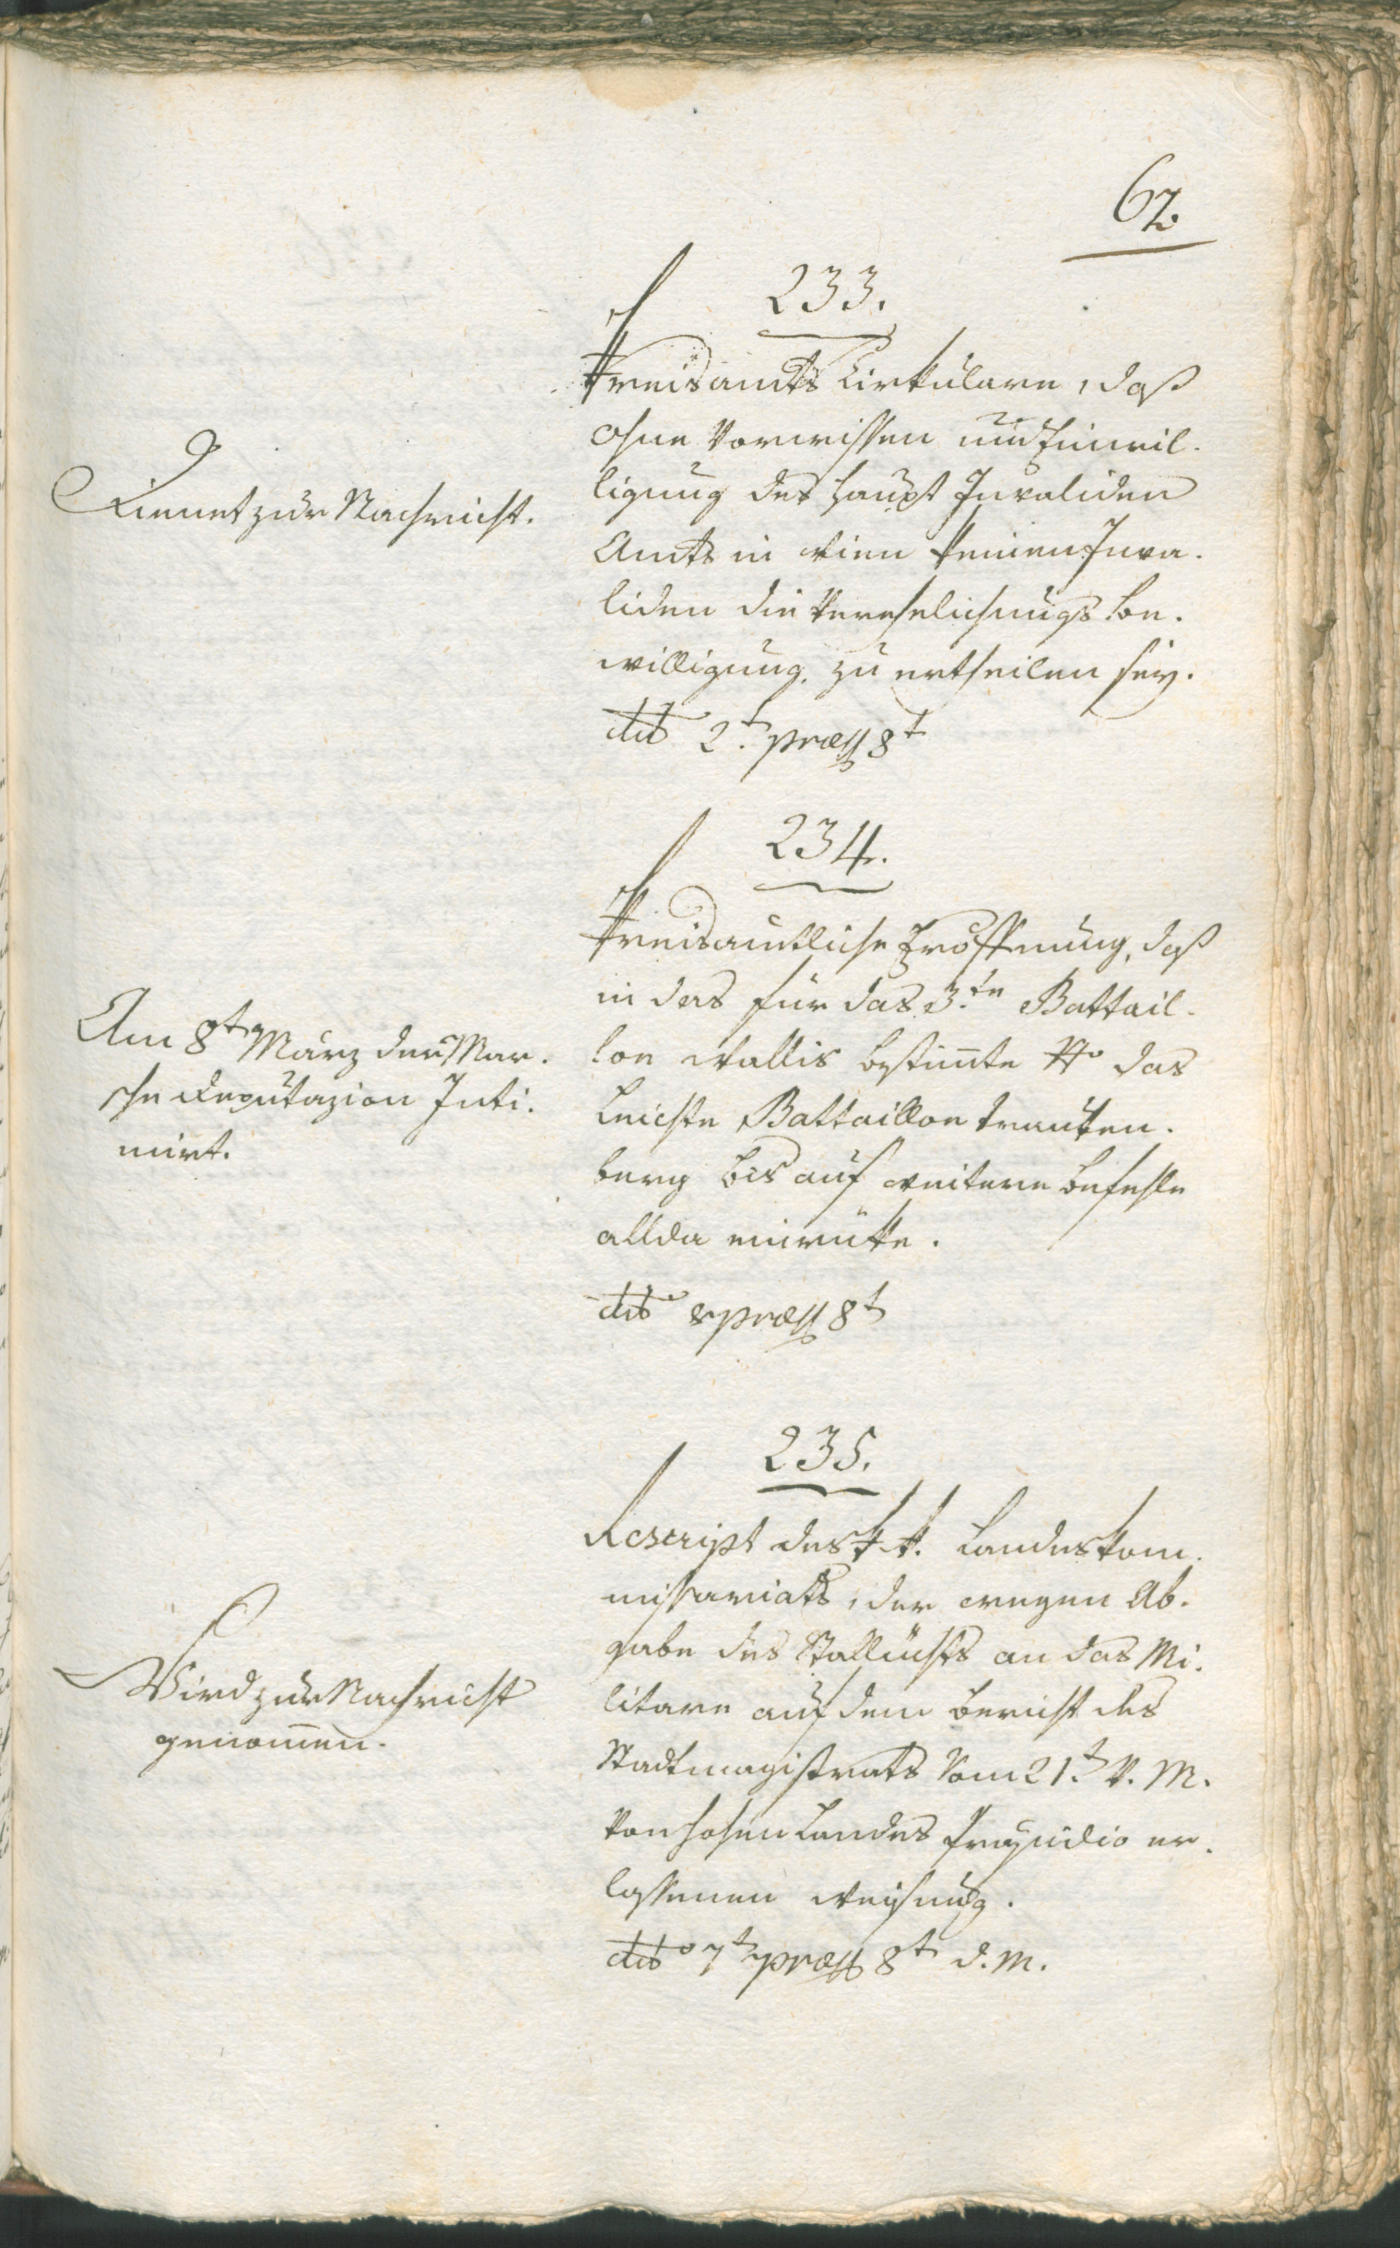 62.
233.
Kreisamts Cirkulare, daß
ohne Vorwissen und Einwil-
ligung des Haupt Invaliden
Amts in Wien keinen Inva-
liden die Verehelichungs be-
willigung zu ertheilen sey.
ddto 2t praes 8t
Dienet zur Nachricht.
234.
Kreisamtliche Eröffnung, daß
in das für das 3te Battail-
lon Wallis bestimte das
Leichte Battaillon Trauten-
berg bis auf weitere Befehle
allda einrücke.
ddto praes 8t
Am 8t März der Mar-
sche Deputazion Inti-
mirt.
235.
Rescript des k. k. Landeskom-
missariats, der wegen Ab-
gabe des Stallichts an das Mi-
litare auf dem Bericht des
Stadtmagistrats vom 21t v. M.
von hohen Landes Präsidio er-
lassenen Weisung.
ddto 7t praes 8t d. M.
Wird zur Nachricht
genommen.